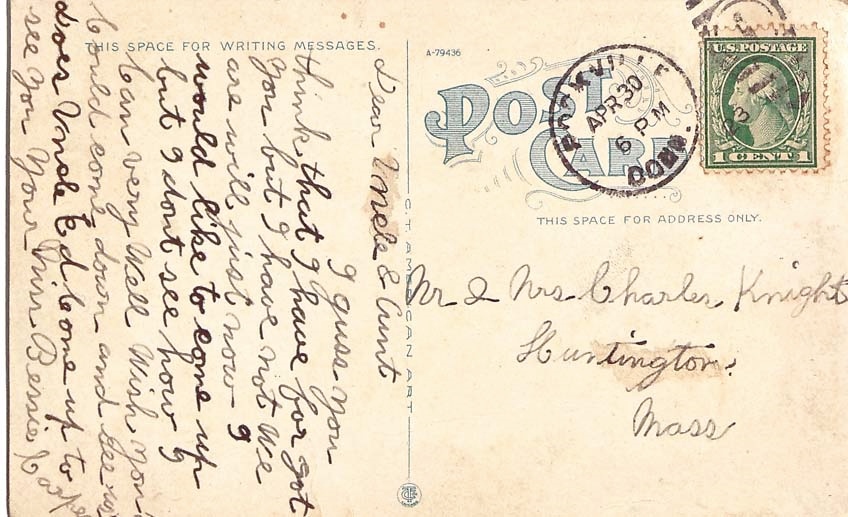 THIS SPACE FOR WRITING MESSAGES.
Dear Uncle & Aunt
I guss you
think that I have for got
you but I have not We
are will just now I
would like to come up
but I dont see how I
Can very Well Wish you
Could come down and see us
does Uncle Ed Come up to
see you Your Bessie
C.T. AMERICAN ART
A-79436
POST CARD
ROCKVILLE
APR 30
6 PM
CONN.
U.S. POSTAGE
1 CENT 1
THIS SPACE FOR ADDRESS ONLY.
Mr & Mrs Charles Knight
Huntington.
Mass